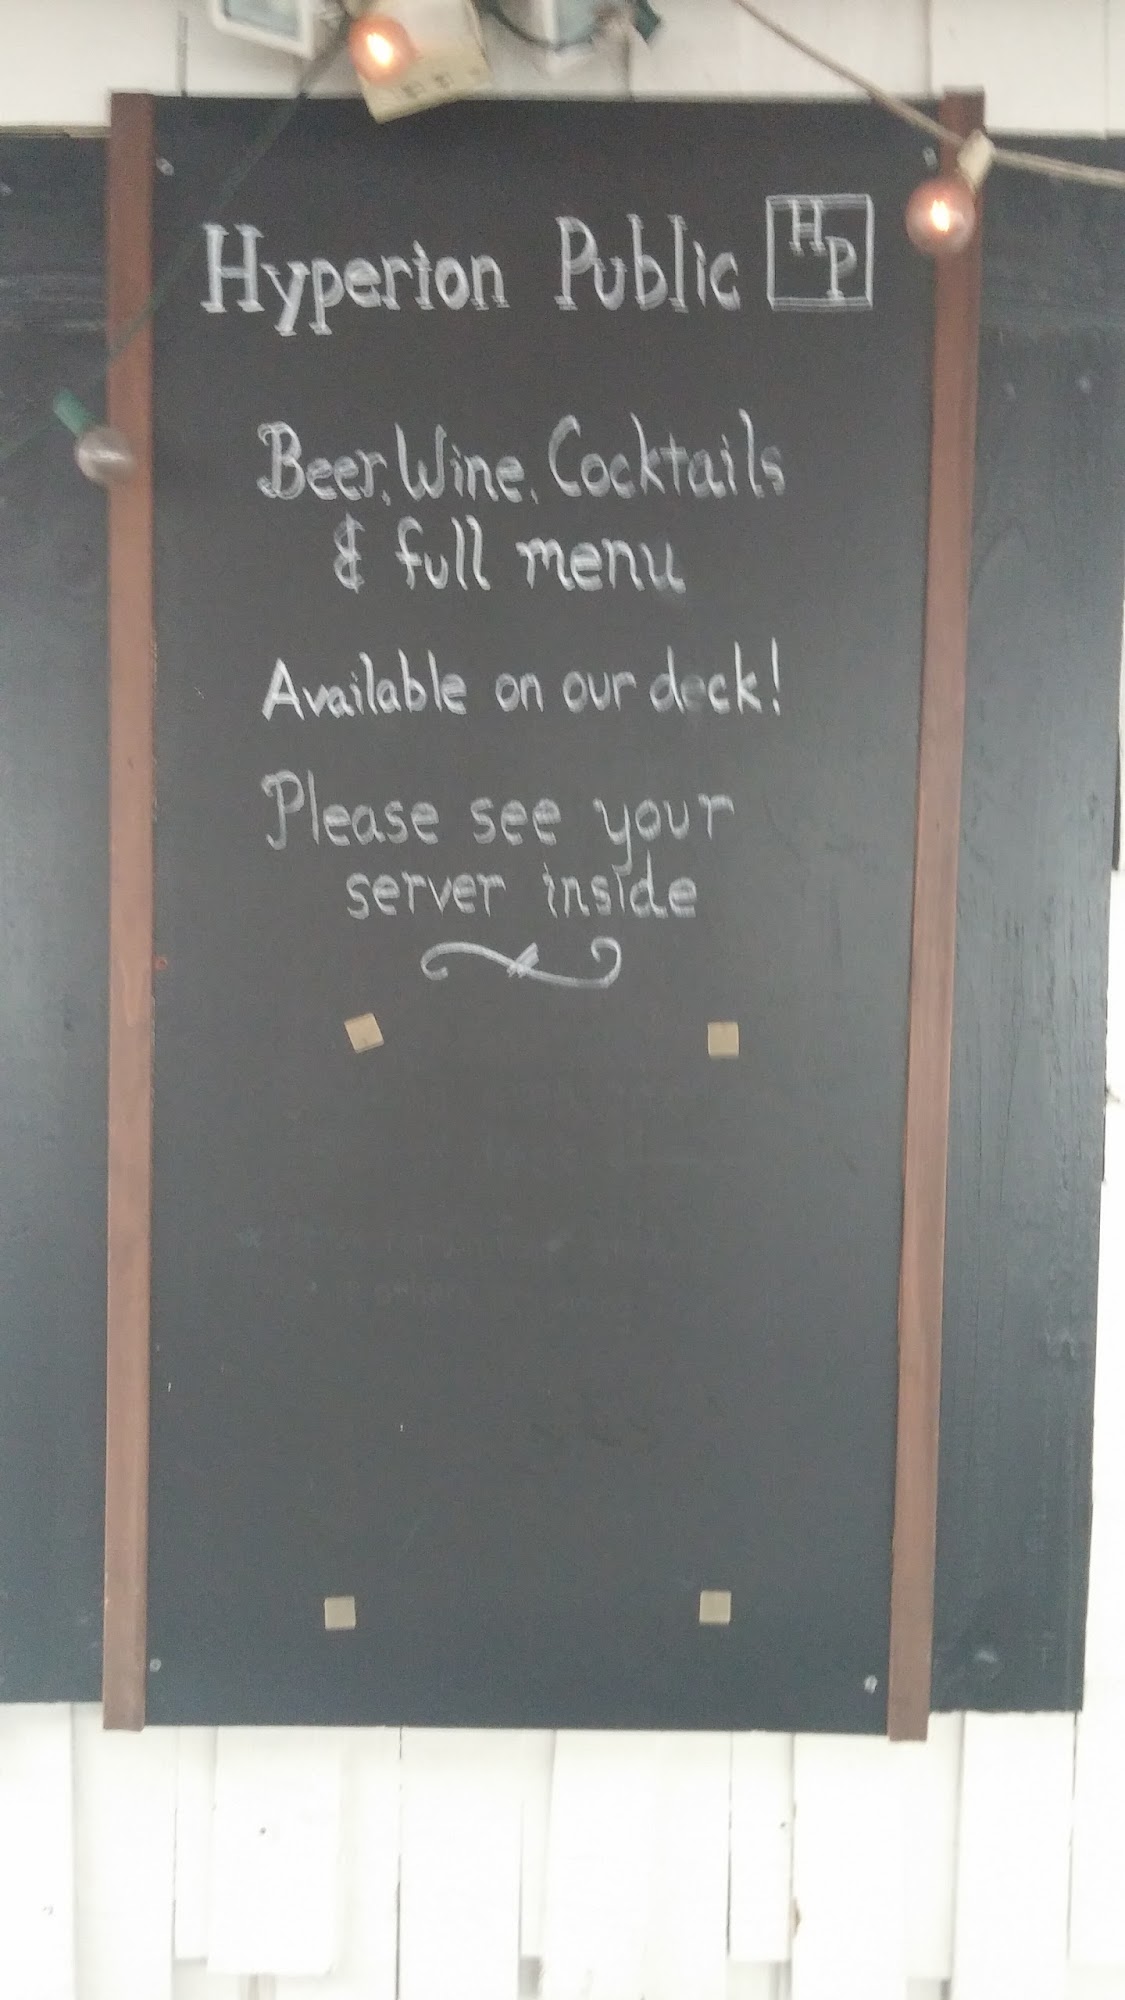 Hyperion Public HP
Beer, Wine, Cocktails
& full menu
Available on our deck!
Please see your
server inside